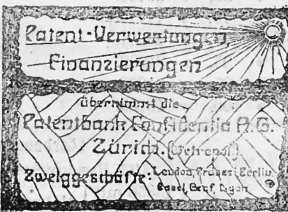 Patent-Verwertungen
Finanzierungen
übernimmt die
Patentbank Confidentia A.G.
Zürich. (Metropol)
Zweiggeschäfte: London, Brüssel, Berlin
Basel, Genf, Lyon